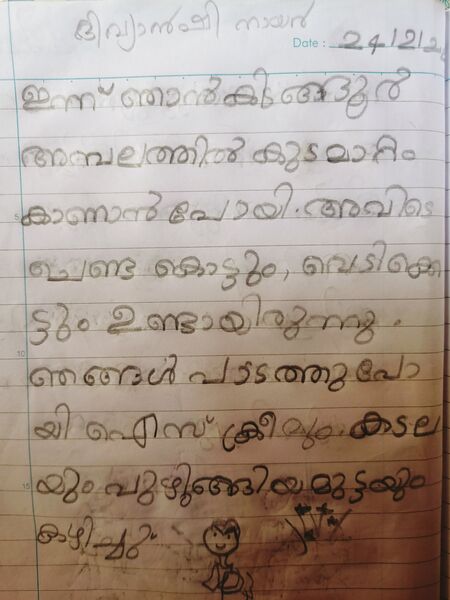 ദിവ്യാൻഷി നായർ
Date : 24/2/2
ഇന്ന് ഞാൻ കിണങ്ങൂർ
അമ്പലത്തിൽ കുടമാറ്റം
കാണാൻ പോയി. അവിടെ
ചെണ്ട കൊട്ടും, വെടിക്കെ
ട്ടും ഉണ്ടായിരുന്നു.
ഞങ്ങൾ പാടത്തു പോ
യി ഐസ് ക്രീമും കടല
യും പുഴുങ്ങിയ മുട്ടയും
കഴിച്ചു.